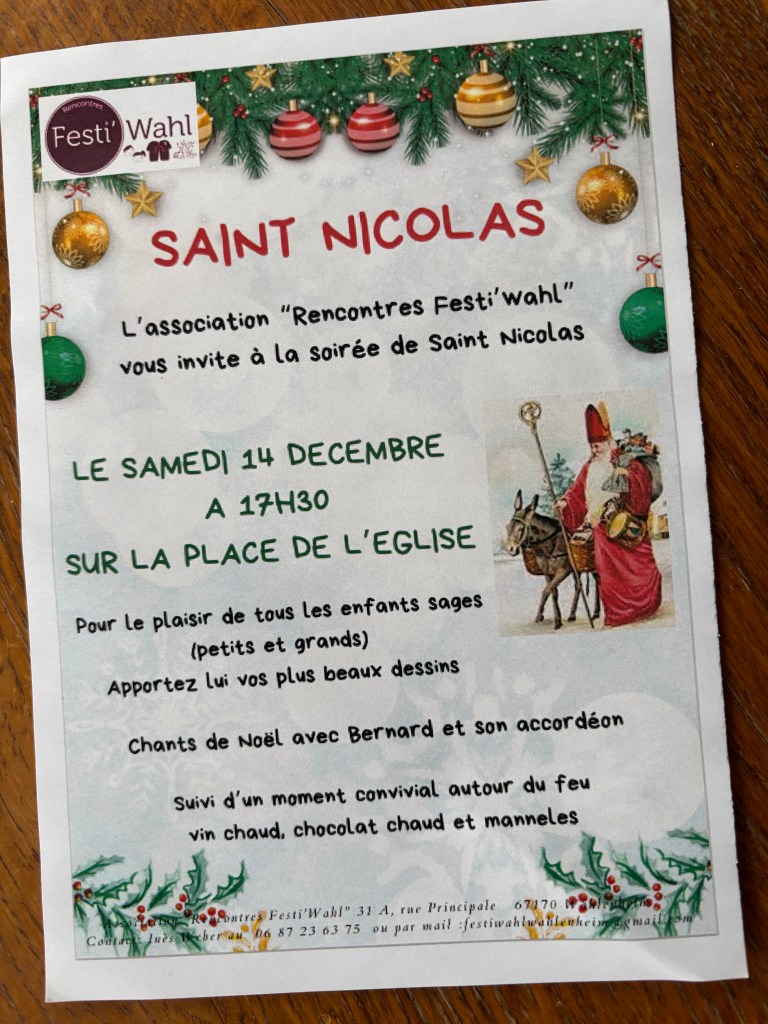 Rencontres
Festi'Wahl
SAINT NICOLAS
L'association "Rencontres Festi'wahl"
vous invite à la soirée de Saint Nicolas
LE SAMEDI 14 DECEMBRE
A 17H30
SUR LA PLACE DE L'EGLISE
Pour le plaisir de tous les enfants sages
(petits et grands)
Apportez lui vos plus beaux dessins
Chants de Noël avec Bernard et son accordéon
Suivi d'un moment convivial autour du feu
vin chaud, chocolat chaud et manneles
Association "Rencontres Festi'Wahl" 31 A, rue Principale 67170 Wahlenheim
Contact: Inès Weber au 06 87 23 63 75 ou par mail :festiwahlwahlenheim@gmail.com